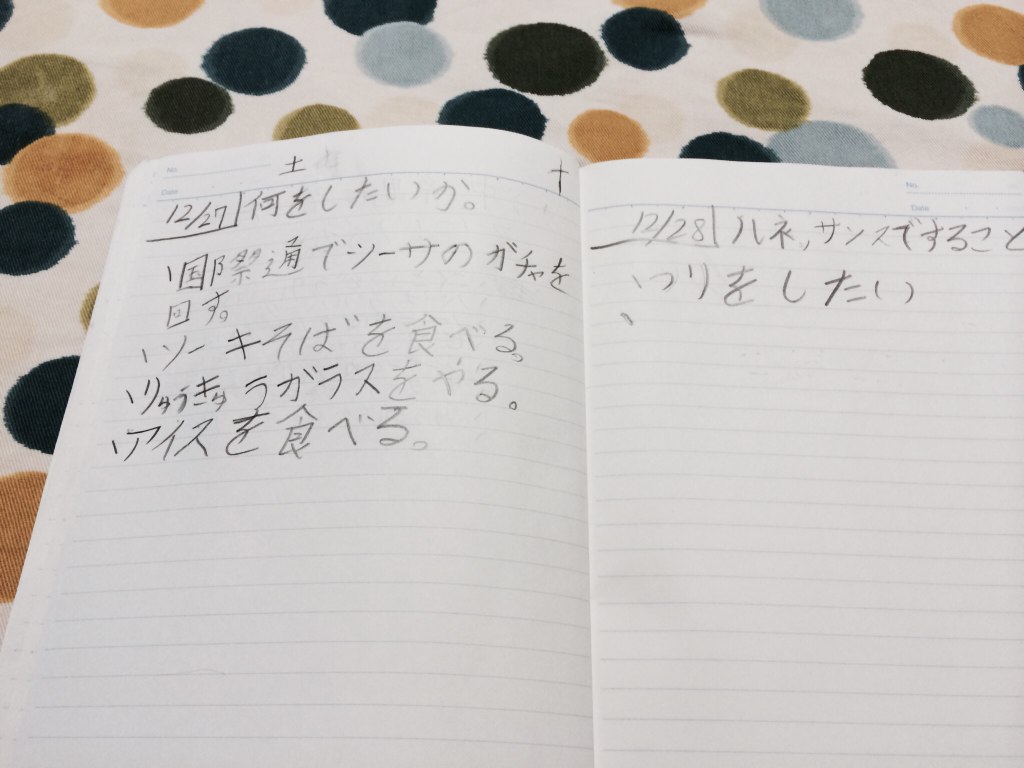 No.
Date
土
12/27 何をしたいか。
、国際通でシーサのガチャを
回す。
、ソーキそばを食べる。
、りゅうきゅうガラスをやる。
、アイスを食べる。
No.
Date
12/28 ルネ,サンスですること
、つりをしたい
、